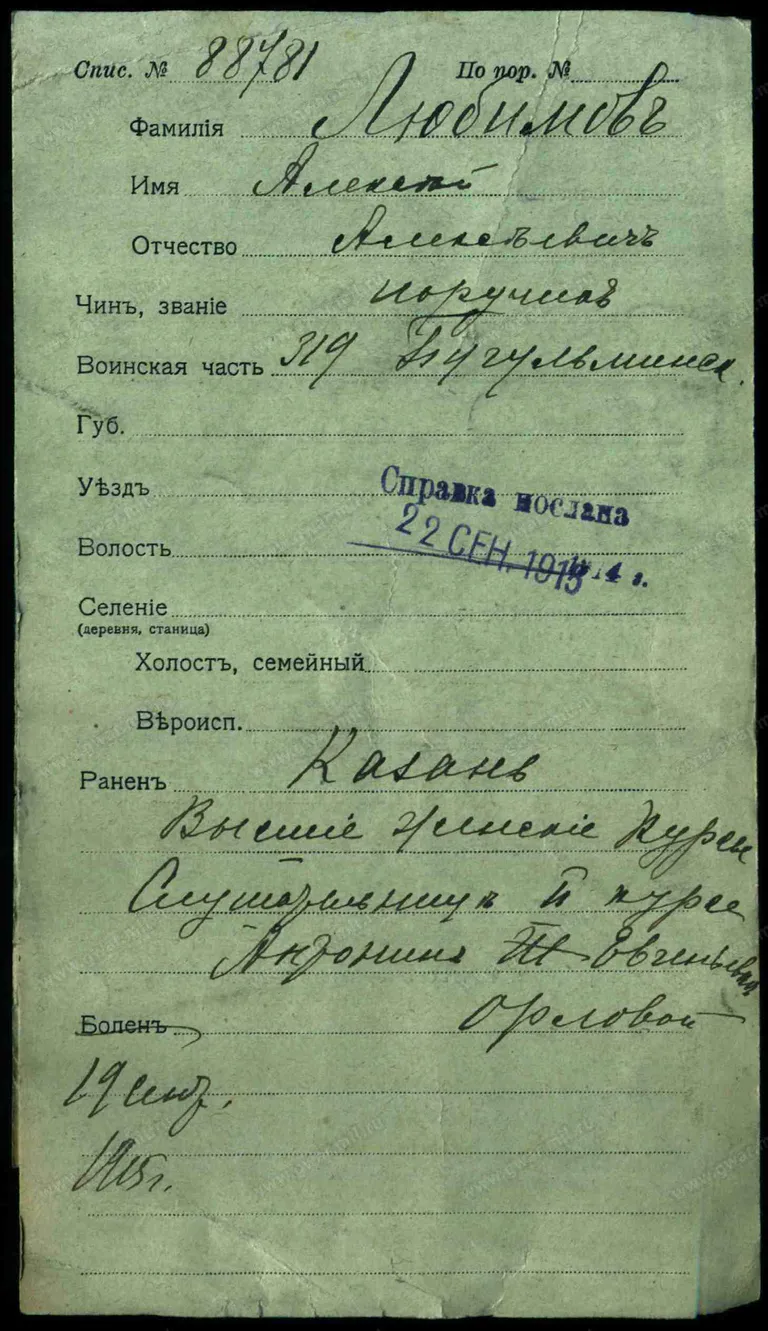 Спис. № 88781 По пор. №
Фамилія Любимовъ
Имя Алексѣй
Отчество Алексѣевичъ
Чинъ, званіе поручикъ
Воинская часть 319 Бугульминск.
Губ.
Уѣздъ
Справка послана
Волость
22 СЕН. 1915
Селеніе
(деревня, станица)
Холостъ, семейный
Вѣроисп.
Раненъ Казань
Высшіе женскіе Курсы
Слушательницѣ II курса
Антонинѣ Евгеньевнѣ
Боленъ Орловой
19 сент.
1915 г.